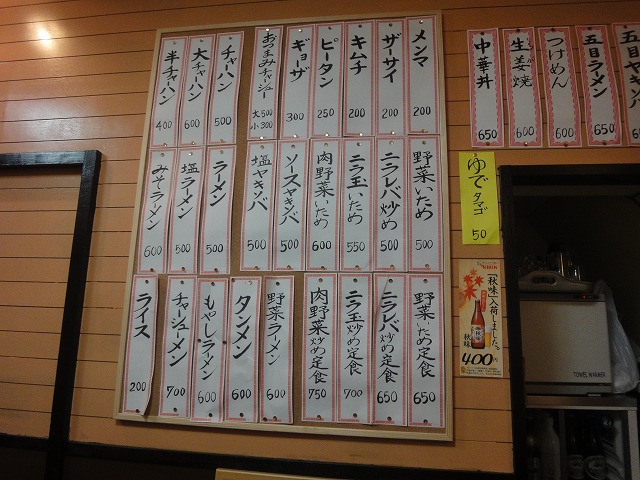 メンマ 200
ザーサイ 200
キムチ 200
ピータン 250
ギョーザ 300
おつまみチャーシュー 大500 小300
チャーハン 500
大チャーハン 600
半チャーハン 400
野菜いため 500
ニラレバ炒め 500
ニラ玉いため 550
肉野菜いため 600
ソースヤキソバ 500
塩ヤキソバ 500
ラーメン 500
塩ラーメン 500
みそラーメン 600
野菜いため定食 650
ニラレバ炒め定食 650
ニラ玉炒め定食 700
肉野菜炒め定食 750
野菜ラーメン 600
タンメン 600
もやしラーメン 600
チャーシューメン 700
ライス 200
五目ラーメン 650
つけめん 600
生姜焼 600
中華丼 650
ゆでタマゴ 50
KIRIN
「秋味」入荷しました。
秋味
400円
TOWEL WARMER